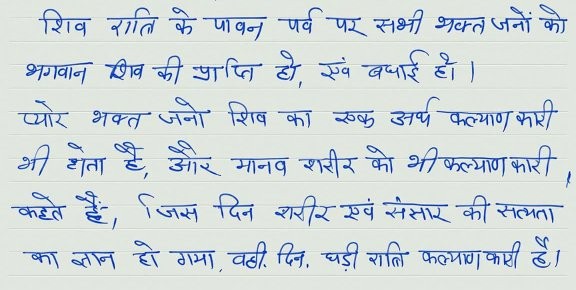 शिव रात्रि के पावन पर्व पर सभी भक्त जनों को
भगवान शिव की प्राप्ति हो, एवं बधाई हो।
प्यारे भक्त जनो शिव का एक अर्थ कल्याणकारी
भी होता है, और मानव शरीर को भी कल्याणकारी
कहते हैं, जिस दिन शरीर एवं संसार की सत्यता
का ज्ञान हो गया, वही, दिन, घड़ी रात्रि कल्याणकारी है।